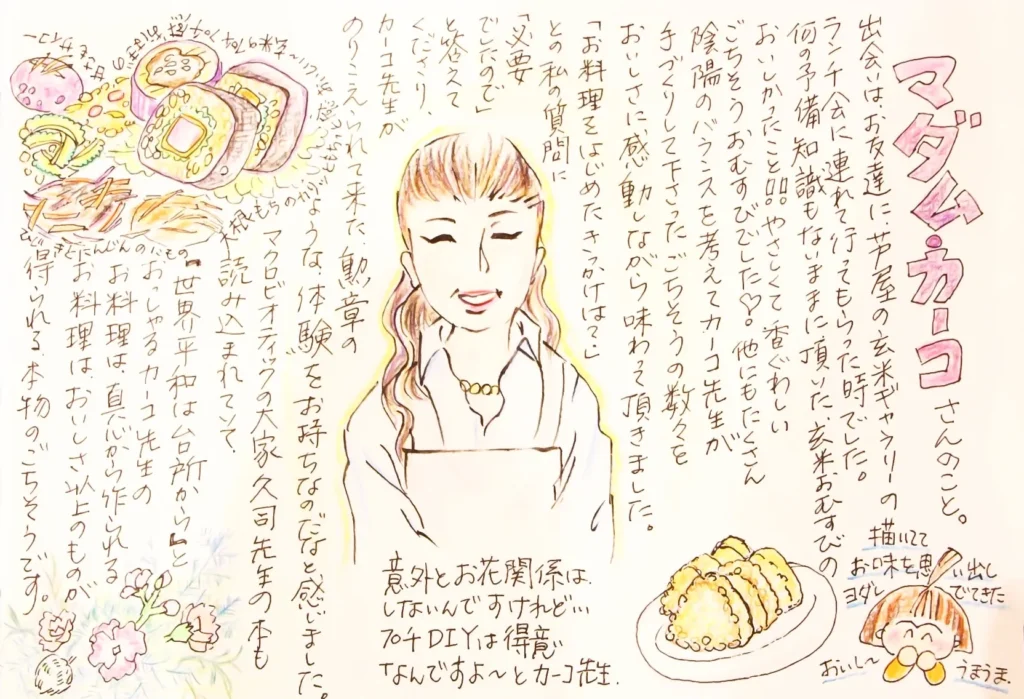 マダム・カーコさんのこと。
出会いは、お友達に芦屋の玄米ギャラリーの
ランチ会に連れて行ってもらった時でした。
何の予備知識もないままに頂いた、玄米おむすびの
おいしかったこと!!やさしくて香ぐわしい
ごちそうおむすびでした♡。他にもたくさん
陰陽のバランスを考えてカーコ先生が
手づくりして下さったごちそうの数々を
おいしさに感動しながら味わって頂きました。
「お料理をはじめたきっかけは?」
との私の質問に
「必要
でしたので」
と答えて
くださり、
カーコ先生が
のりこえられて来た、勲章の
ような、体験をお持ちなのだなと感じました。
マクロビオティックの大家久司先生の本も
読み込まれていて
『世界平和は台所から』と
おっしゃるカーコ先生の
お料理は、真心から作られる
お料理は、おいしさ以上のものが
得られる、本物のごちそうです。
ひじきとにんじんのにもの
意外とお花関係は、
しないんですけれど…
プチDIYは得意
なんですよ〜とカーコ先生.
描いてて
お味を思い出し
ヨダレでてきた
おいし〜
うまうま.